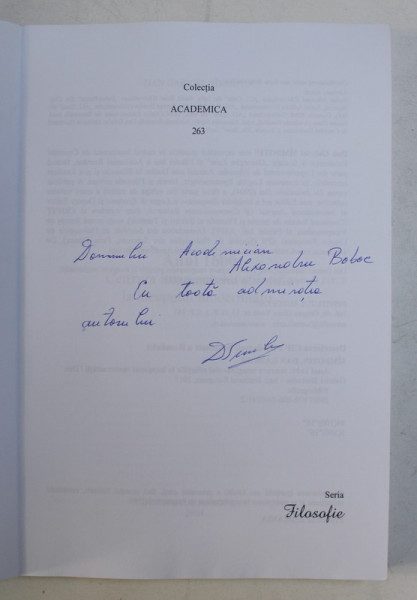 Colecția
ACADEMICA
263
Domnului Academician
Alexandru Boboc
Cu toată admirația
autorului
Seria
Filosofie